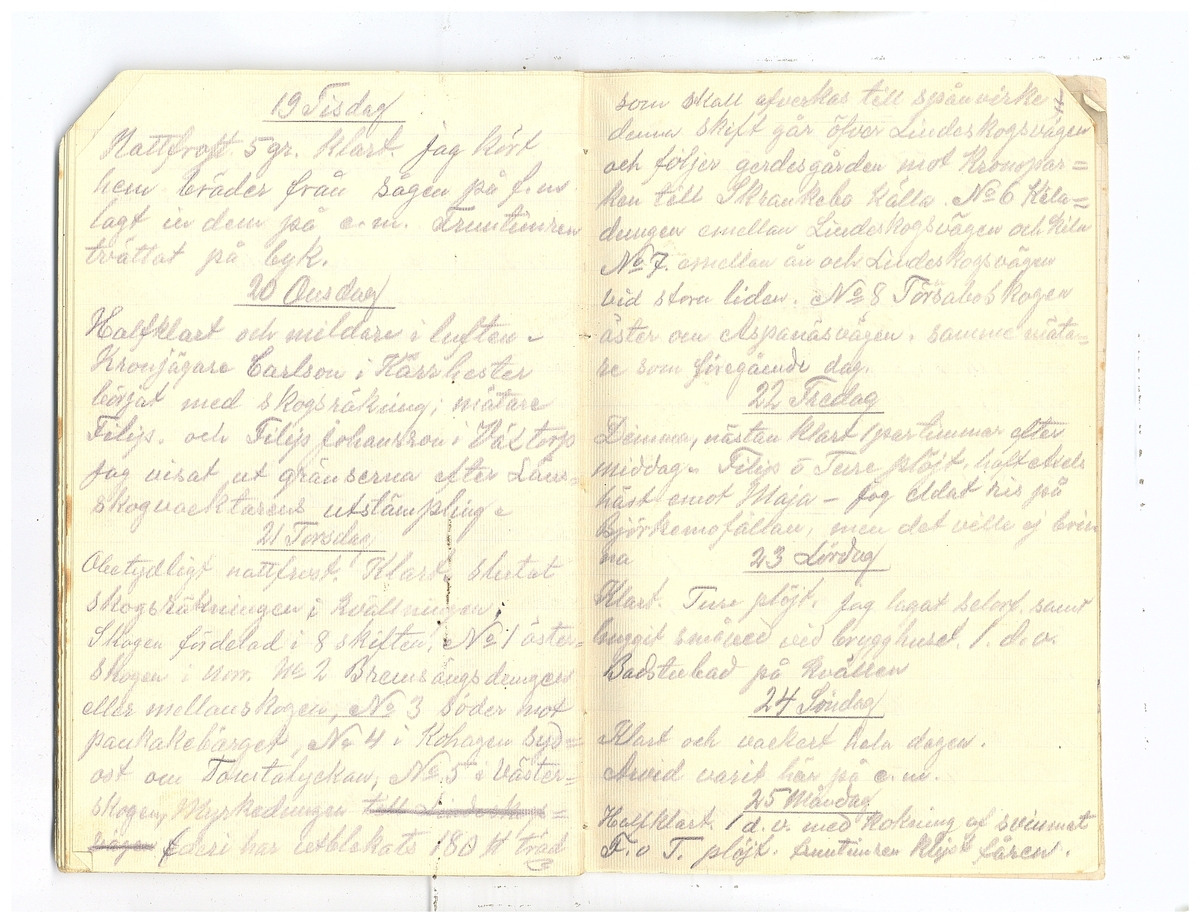 19 Tisdag
Nattfrost 5 gr. Klart. Jag kört
hem bräder från sågen på f.m.
lagt in dem på e.m. Fruntimren
tvättat på byk.
20 Onsdag
Halfklart och mildare i luften.
Kronjägare Carlson i Kärrhester
börjat med skogsräkning; mätare
Filip. och Filip Johansson i Växtorp
Jag visat ut gränserna efter Läns-
skogvaektarens utstämpling.
21 Torsdag
Obetydligt nattfrost. Klart slutat
skogsräkningen i kvällningen.
Skogen fördelad i 8 skiften, No 1 öster-
skogen i norr. No 2 Bremsängsdungen
eller mellanskogen, No 3 söder mot
pankakebärget, No 4 i Kohagen syd=
ost om Tomtalyckan, No 5 i Väster=
skogen, Myrkedungen till Lindeskogs=
vägen (deri har utblekats 180 st träd
som skall afverkas till spånvirke
denna skift går öfver Lindeskogsvägen
och följer gerdesgården mot Kronopar=
ken till Skrankebo källa. No 6 Kila=
dungen emellan Lindeskogsvägen och kila
No 7. emellan ån och Lindeskogsvägen
vid stora liden. No 8 Törsaboskogen
öster om Aspanäsvägen. samme mäta-
re som föregående dag.
22 Fredag
Dimma, nästan klart 1 partimmar efter
middag. Filip o Ture plöjt, haft Axels
häst emot Maja – Jag eldat ris på
Björkemofällan, men det ville ej brin
na
23 Lördag
Klart. Ture plöjt. Jag lagat selort. samt
huggit småved vid brygghuset. 1. d. v.
Badstubad på kvällen
24 Söndag
Klart och vackert hela dagen.
Arvid varit här på e.m.
25 Måndag
Halfklart. 1 d. v. med kokning af svinmat
F. o T. plöjt. fruntimren klipt fåren.